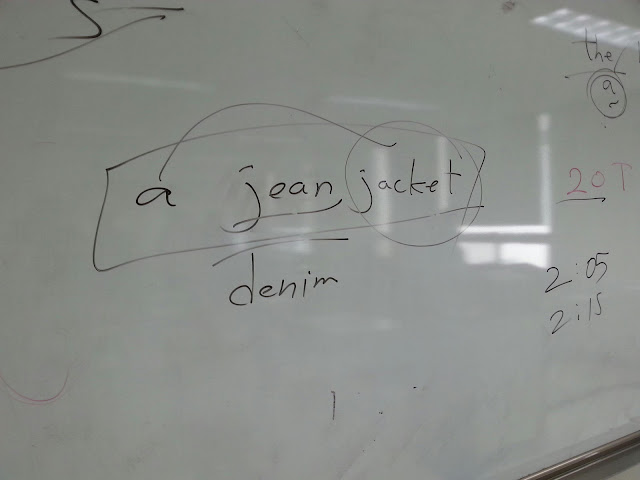 the
a
a jean jacket
denim
20T
2:05
2:15